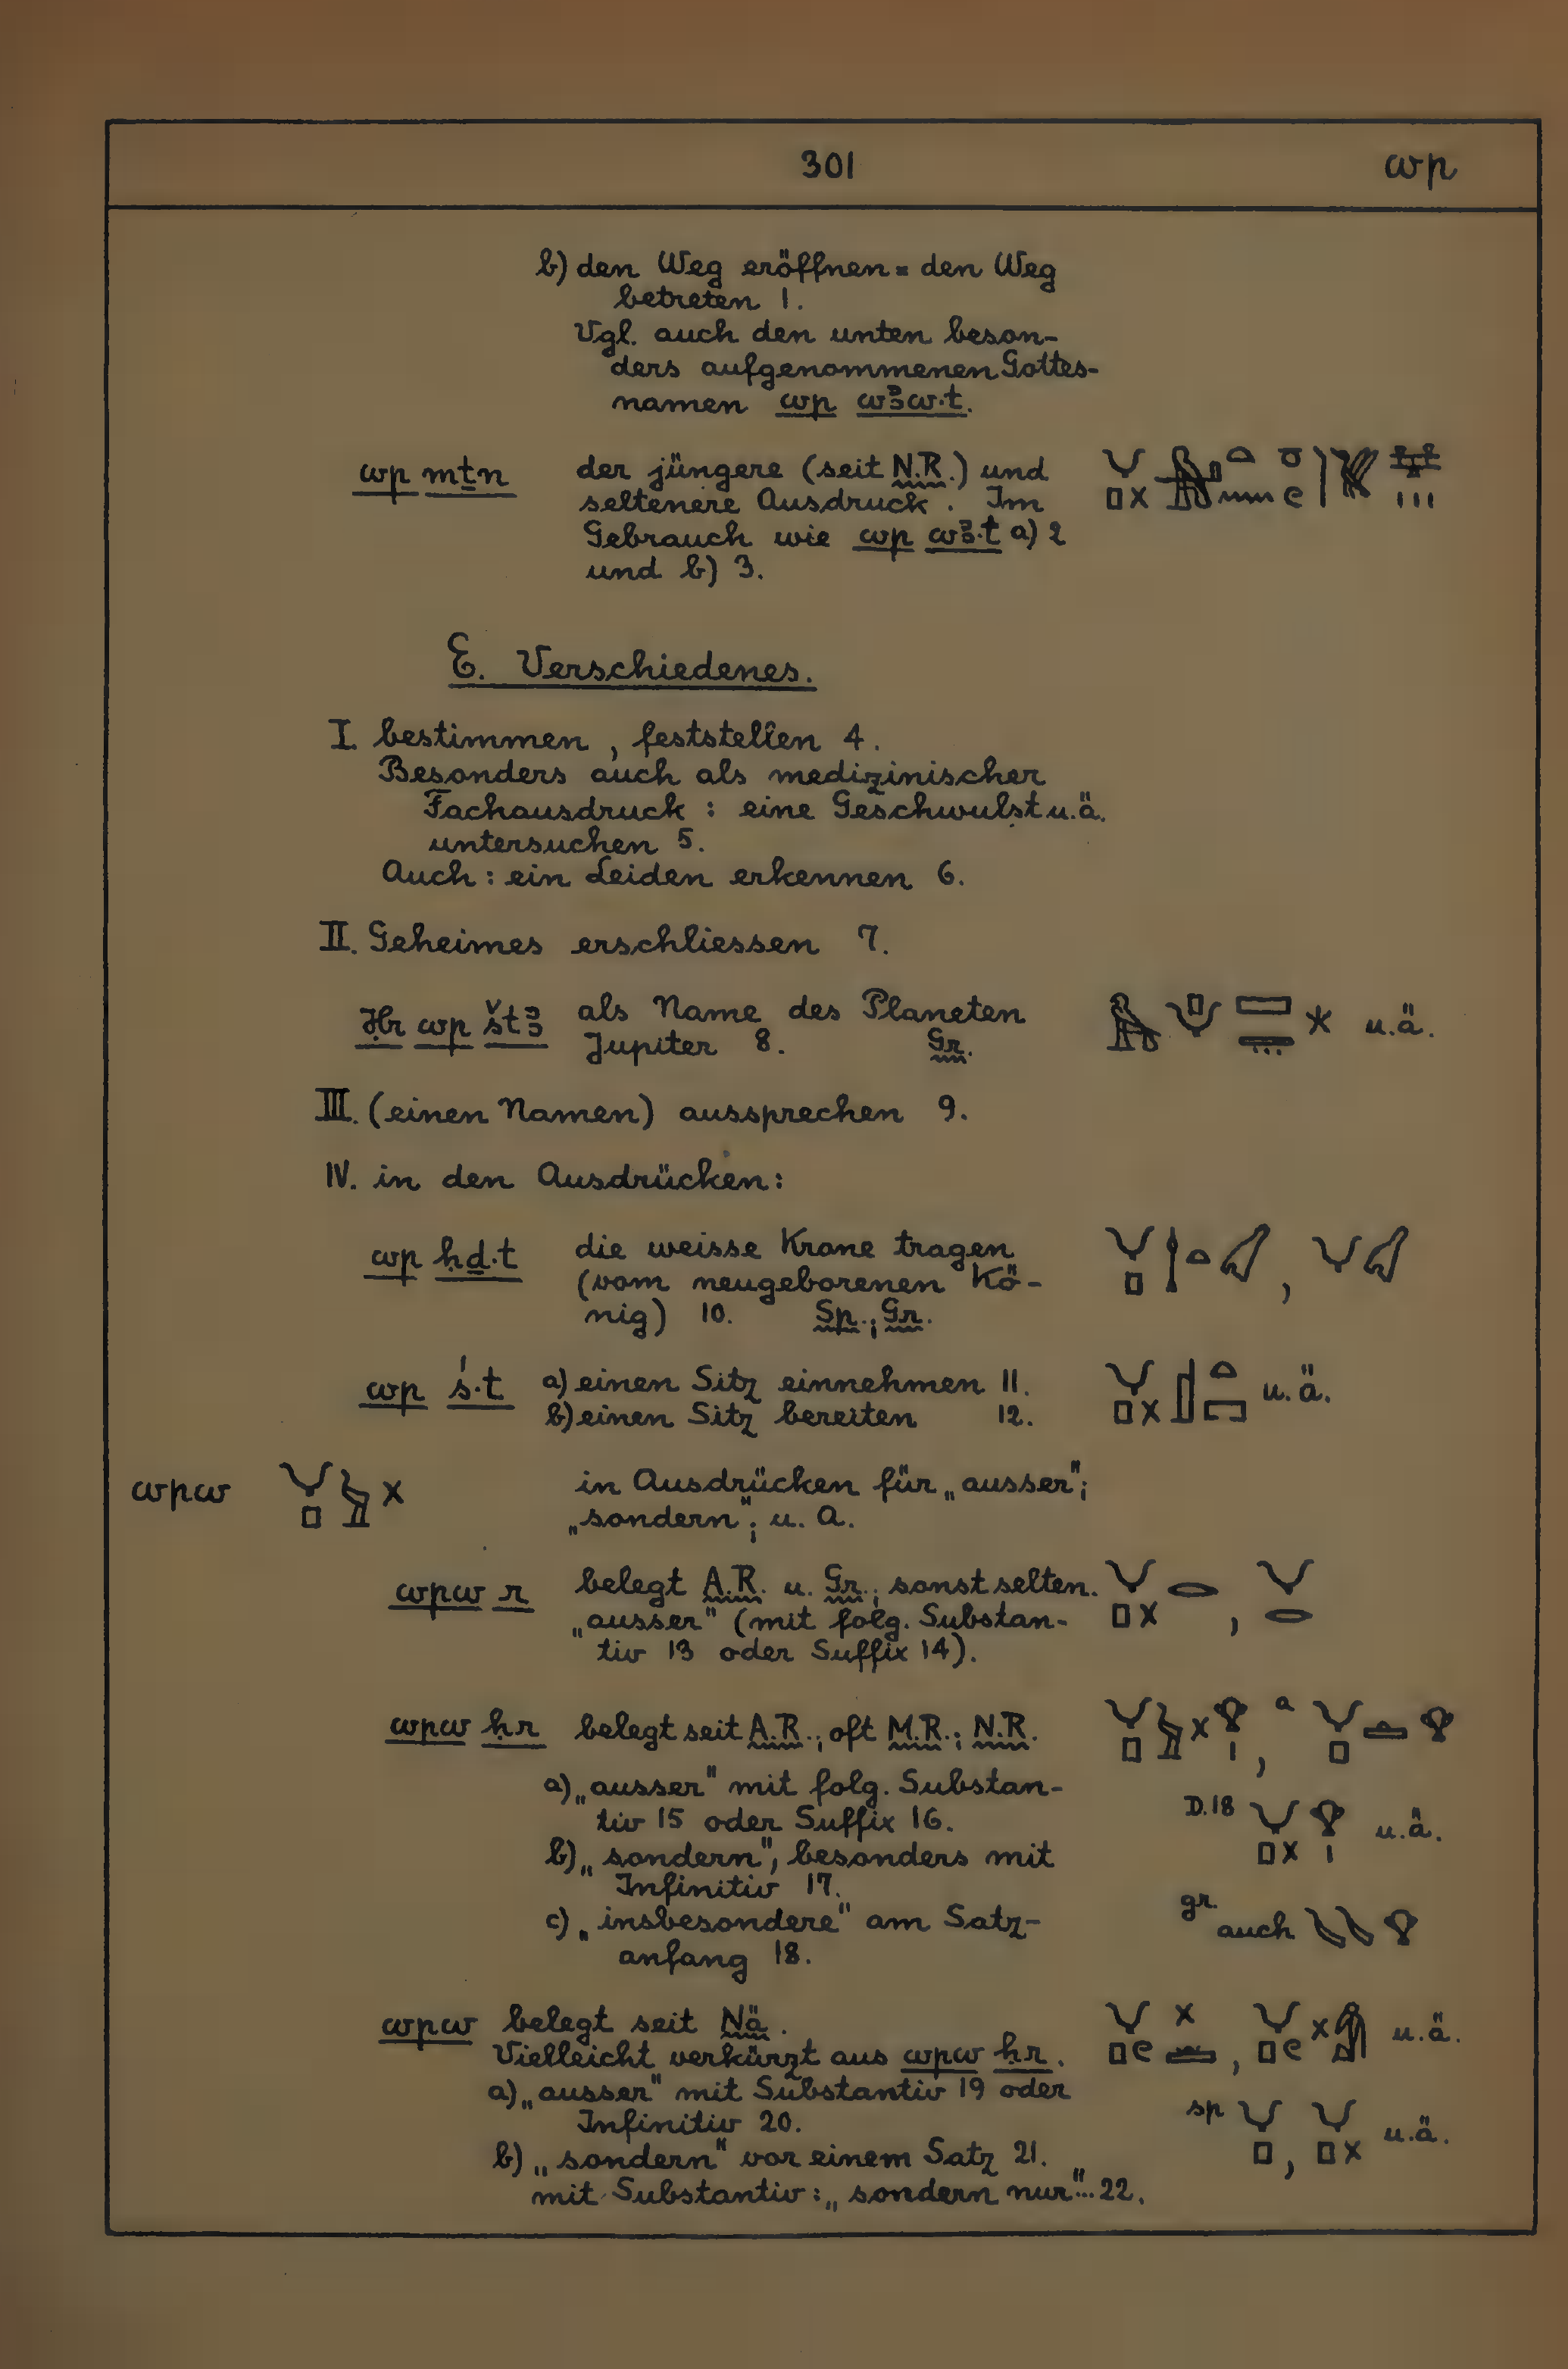 301 wp
b) den Weg eröffnen = den Weg
betreten 1.
Vgl. auch den unten beson-
ders aufgenommenen Gottes-
namen wp wꜣw·t.
wp mṯn der jüngere (seit N.R.) und
seltenere Ausdruck. Im
Gebrauch wie wp wꜣ·t a) 2
und b) 3.
E. Verschiedenes.
I. bestimmen, feststellen 4.
Besonders auch als medizinischer
Fachausdruck: eine Geschwulst u.ä.
untersuchen 5.
Auch: ein Leiden erkennen 6.
II. Geheimes erschliessen 7.
Ḥr wp štꜣ als Name des Planeten u.ä.
Jupiter 8. Gr.
III. (einen Namen) aussprechen 9.
IV. in den Ausdrücken:
wp ḥḏ·t die weisse Krone tragen
(vom neugeborenen Kö-
nig) 10. Sp.; Gr.
wp ś·t a) einen Sitz einnehmen 11. u.ä.
b) einen Sitz bereiten 12.
wpw in Ausdrücken für „ausser";
„sondern"; u. A.
wpw r belegt A.R. u. Gr., sonst selten.
„ausser" (mit folg. Substan-
tiv 13 oder Suffix 14).
wpw ḥr belegt seit A.R.; oft M.R.; N.R. a
a) „ausser" mit folg. Substan-
tiv 15 oder Suffix 16. D.18 u.ä.
b) „sondern", besonders mit
Infinitiv 17.
c) „insbesondere" am Satz- gr. auch
anfang 18.
wpw belegt seit Nä. u.ä.
Vielleicht verkürzt aus wpw ḥr.
a) „ausser" mit Substantiv 19 oder
Infinitiv 20. sp u.ä.
b) „sondern" vor einem Satz 21.
mit Substantiv: „sondern nur"... 22.